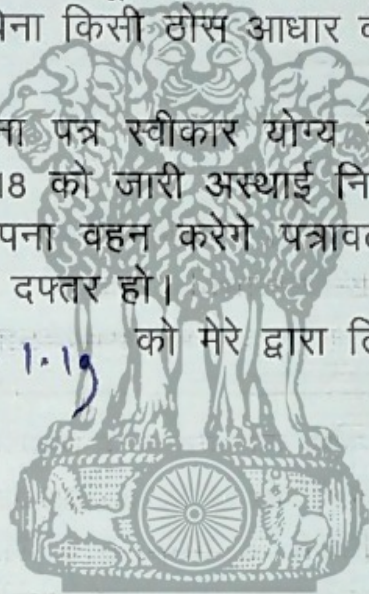 िना किसी ठोस आधार व
ना पत्र स्वीकार योग्य
18 को जारी अस्थाई नि
पना वहन करेगे पत्राव
दफ्तर हो।
1.19 को मेरे द्वारा ि